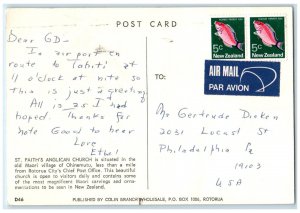 POST CARD
Dear GD-
In air port en
route to Tahiti at
11 o'clock at nite so
this is just a greeting.
All is as I had
hoped. Thanks for
note Good to hear
Love
Ethel
ST. FAITH'S ANGLICAN CHURCH is situated in the
old Maori village of Ohinemutu, less than a mile from
Rotorua City's Chief Post Office. This beautiful
church is open to visitors daily and contains some
of the most magnificent Maori carvings and orna-
mentations to be seen in New Zealand.
D66
PUBLISHED BY COLIN BRANCH WHOLESALE, P.O. BOX 1086, ROTORUA
5c
New Zealand
5c
New Zealand
AIR MAIL
PAR AVION
TO:
Ms Gertrude
2031 Locust St
Philadelphia Pa
19103
USA